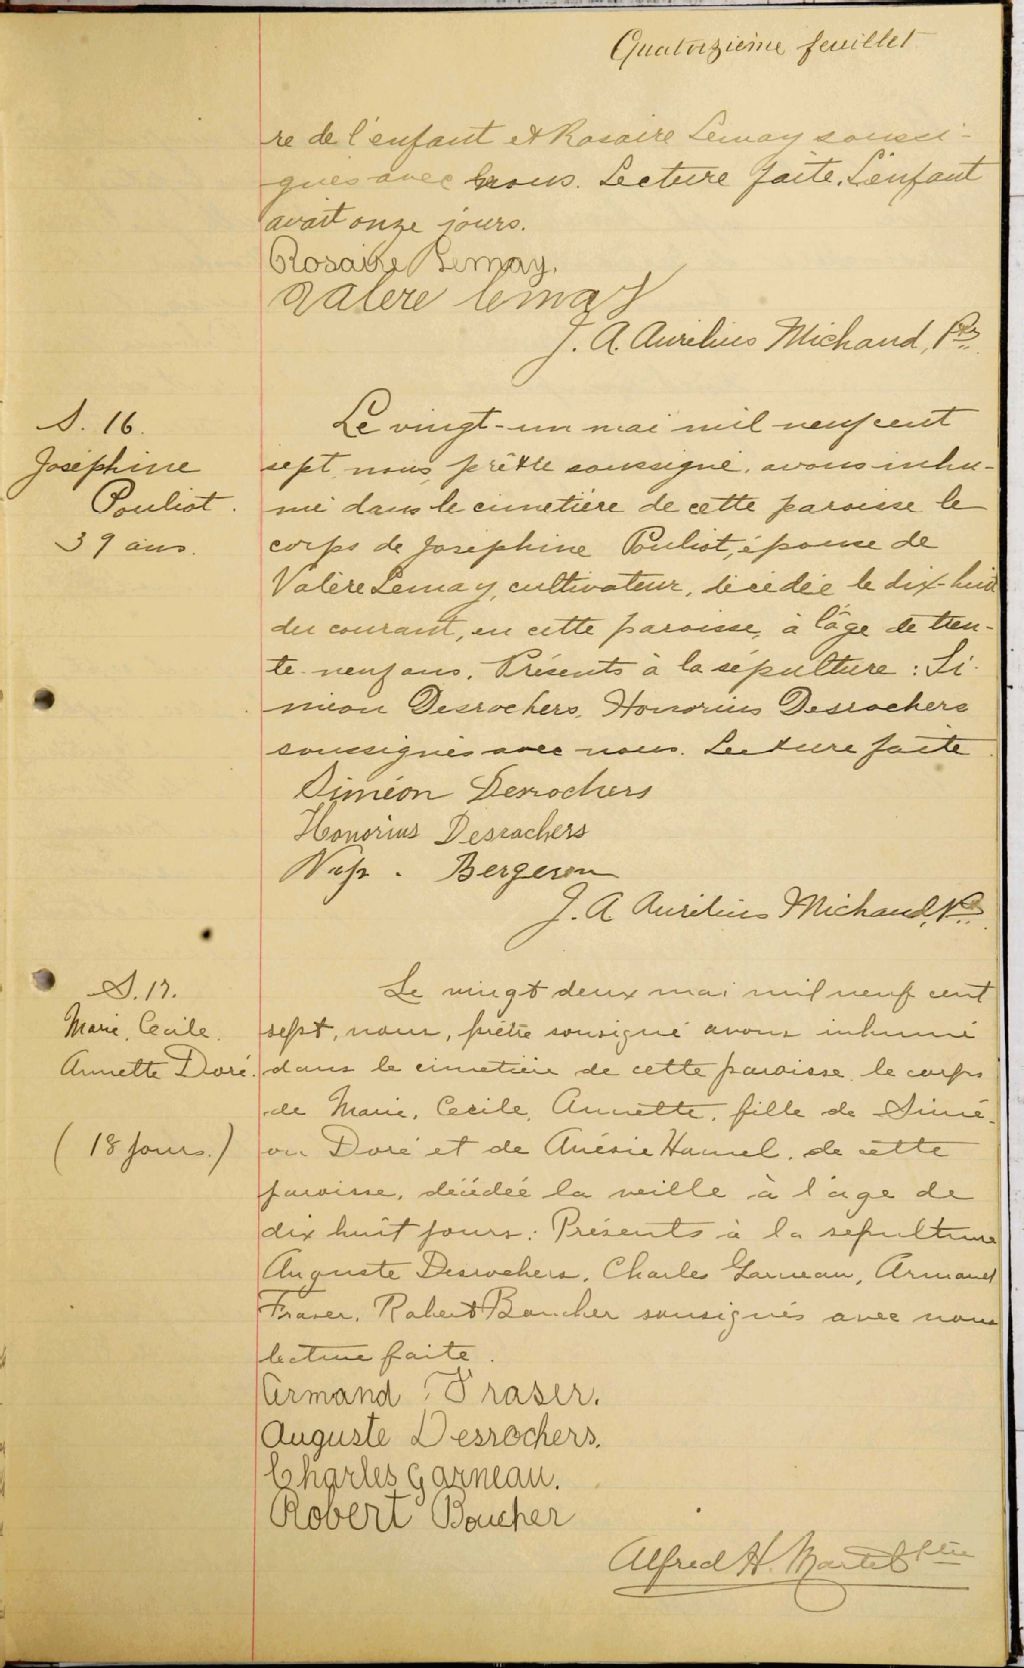 Quatorzième feuillet
re de l'enfant et Rosaire Lemay soussi-
gnés avec nous. Lecture faite. L'enfant
avait onze jours.
Rosaire Lemay.
Valère Lemay
J. A. Aurélius Michaud, Ptre
S. 16.
Joséphine
Pouliot.
39 ans.
Le vingt-un mai mil neuf cent
sept, nous, prêtre soussigné, avons inhu-
mé dans le cimetière de cette paroisse le
corps de Joséphine Pouliot, épouse de
Valère Lemay, cultivateur, décédée le dix-huit
du courant, en cette paroisse, à l'âge de tren-
te-neuf ans. Présents à la sépulture : Si-
méon Desrochers, Honorius Desrochers
soussignés avec nous. Lecture faite.
Siméon Desrochers
Honorius Desrochers
Nap. Bergeron
J. A Aurélius Michaud, Ptre
S. 17.
Marie, Cecile,
Annette Doré.
(18 jours.)
Le vingt deux mai mil neuf cent
sept, nous, prêtre sousigné avons inhumé
dans le cimetière de cette paroisse le corps
de Marie, Cecile, Annette, fille de Simé-
on Doré et de Anésie Hamel, de cette
paroisse, décédée la veille à l'age de
dix huit jours: Présents à la sepulture
Auguste Desrochers, Charles Garneau, Armand
Fraser, Robert Boucher sousignés avec nous
lecture faite.
Armand Fraser.
Auguste Desrochers.
Charles Garneau.
Robert Boucher
Alfred H. Martel ptre